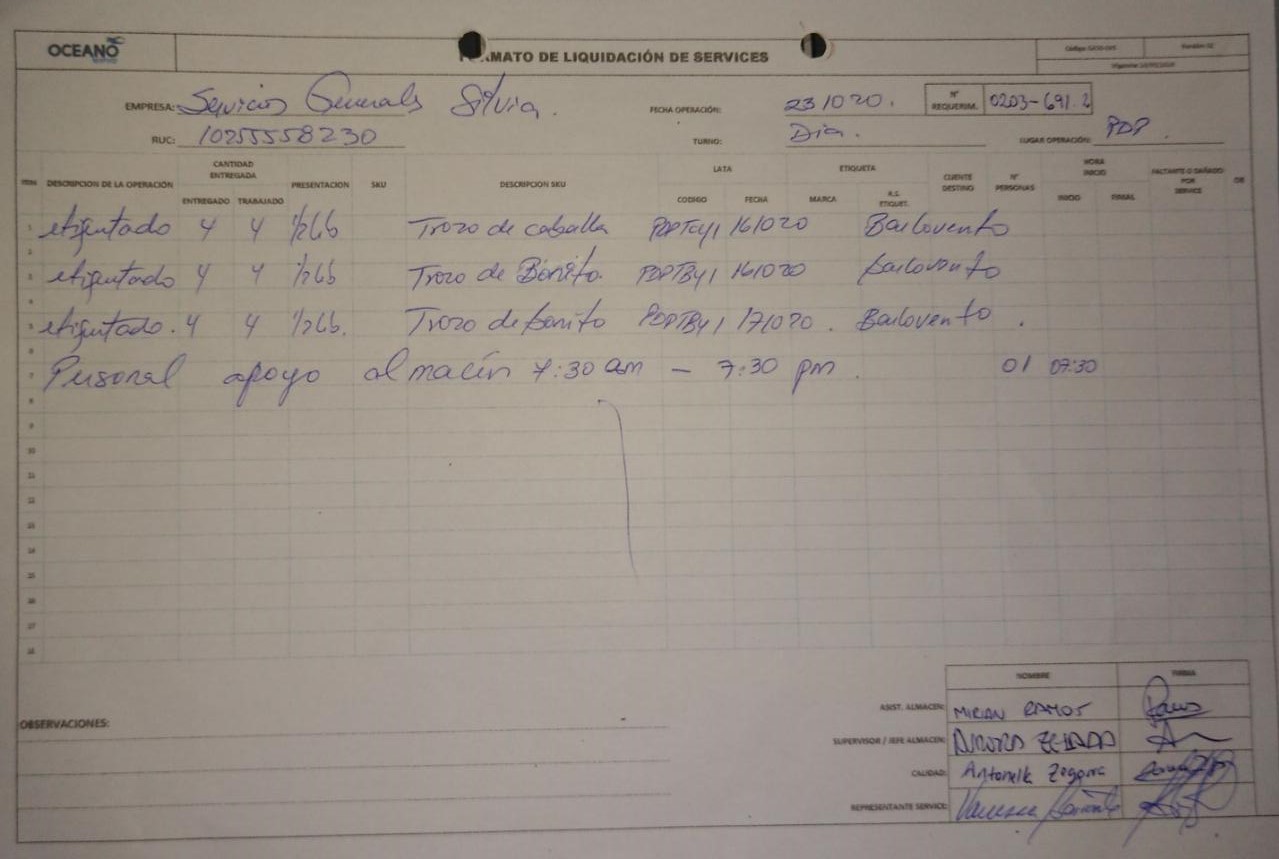 OCEANO
MATO DE LIQUIDACIÓN DE SERVICES
EMPRESA: Servicios Generales Silvia.
FECHA OPERACIÓN: 231020.
N° REQUERIM. 0203-691.2
RUC: 10255558230
TURNO: Dia.
LUGAR OPERACIÓN: PDP.
ITEM DESCRIPCION DE LA OPERACIÓN CANTIDAD ENTREGADA ENTREGADO TRABAJADO PRESENTACION SKU DESCRIPCION SKU LATA CODIGO FECHA ETIQUETA MARCA R.S. ETIQUET. CLIENTE DESTINO N° PERSONAS HORA INICIO INICIO FINAL FALTANTE O DAÑADO POR SERVICE
1 etiquetado 4 4 1/2Lb Trozo de caballa 161020 Barlovento
2
3 etiquetado 4 4 1/2Lb Trozo de Bonito. PDPTBY1 161020 Barlovento
4
5 etiquetado. 4 4 1/2Lb. Trozo de bonito PDPTBY1 171020. Barlovento.
6
7 Personal apoyo almacén 7:30 am - 7:30 pm. 01 07:30
8
9
10
11
12
13
14
15
16
17
18
NOMBRE FIRMA
OBSERVACIONES:
ASIST. ALMACEN: MIRIAN RAMOS
SUPERVISOR / JEFE ALMACEN:
CALIDAD: Antonella Zegarra
REPRESENTANTE SERVICE: Vanessa